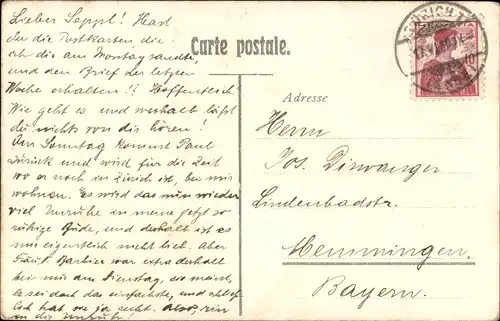 Lieber Seppl! Hast
du die Postkarten die
ich dir am Montag sandte,
und den Brief der letzten
Woche erhalten!? Hoffentlich!
Wie geht es und weshalb läßt
du nichts von dir hören!
Am Sonntag kommt Paul
zurück und wird für die Zeit
wo er noch in Zürich ist, bei mir
wohnen. Es wird das nun wieder
viel Unruhe in meine jetzt so
ruhige Bude, und deshalb ist es
mir eigentlich nicht lieb. Aber
war extra deshalb
bei mir den Dienstag, er meint,
es sei doch das einfachste, und
hat sie ja recht. Also, rin
in die Unruhe!
Carte postale.
ZÜRICH
10
Adresse
Herrn
Jos. Dirwanger
Lindenbadstr.
Memmingen.
Bayern.